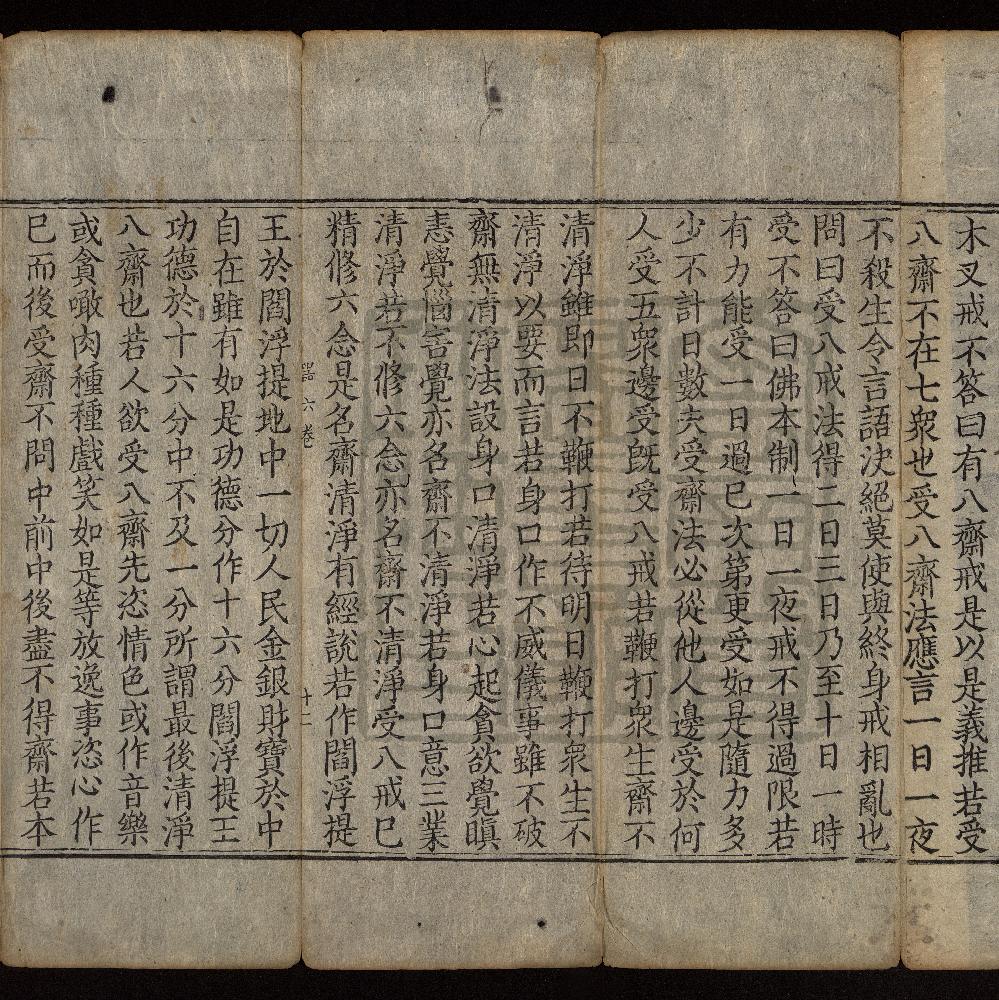 木叉戒不答曰有八齋戒是以是義推若受
八齋不在七衆也受八齋法應言一日一夜
不殺生令言語決絕莫使與終身戒相亂也
問曰受八戒法得二日三日乃至十日一時
受不答曰佛本制一日一夜戒不得過限若
有力能受一日過已次第更受如是隨力多
少不計日數夫受齋法必從他人邊受於何
人受五衆邊受旣受八戒若鞭打衆生齋不
清淨雖即日不鞭打若待明日鞭打衆生不
清淨以要而言若身口作不威儀事雖不破
齋無清淨法設身口清淨若心起貪欲覺瞋
恚覺惱害覺亦名齋不清淨若身口意三業
清淨若不修六念亦名齋不清淨受八戒已
精修六念是名齋清淨有經說若作閻浮提
六卷 十二
王於閻浮提地中一切人民金銀財寶於中
自在雖有如是功德分作十六分閻浮提王
功德於十六分中不及一分所謂最後清淨
八齋也若人欲受八齋先恣情色或作音樂
或貪噉肉種種戲笑如是等放逸事恣心作
已而後受齋不問中前中後盡不得齋若本